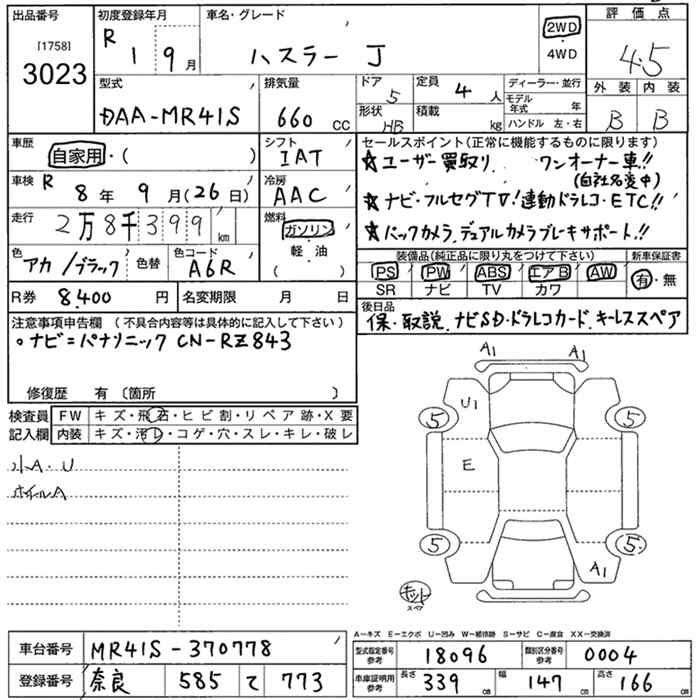 出品番号 初度登録年月 車名・グレード 評価点
[1758]
3023
R 1 9月
ハスラー J
2WD
・
4WD
4.5
型式 排気量 ドア 定員 ディーラー・並行 外装 内装
DAA-MR41S 660 CC 5 4人 モデル年式 年
形状 HB 積載 kg ハンドル 左・右 B B
車歴 シフト セールスポイント(正常に機能するものに限ります)
自家用・( ) IAT ★ユーザー買取り. ワンオーナー車!!
(自社名変中)
車検 R 8年 9月(26日) 冷房 AAC ★ナビ・フルセグTV!連動ドラレコ・ETC!!
走行 2万8千399km 燃料 ガソリン ★バックカメラ.デュアルカメラブレーキサポート.!!
軽・油
( )
色 アカ/ブラック 色替 色コード A6R
装備品(純正品に限り丸をつけて下さい) 新車保証書
PS PW ABS エアB AW 有・無
SR ナビ TV カワ
R券 8.400円 名変期限 月 日
後日品
保・取説.ナビSD・ドラレコカード.キーレススペア
注意事項申告欄 (不具合内容等は具体的に記入して下さい)
○ナビ=パナソニック CN-RZ843
修復歴 有 〔箇所 〕
検査員 FW キズ・飛石・ヒビ割・リペア跡・X要
記入欄 内装 キズ・汚レ・コゲ・穴・スレ・キレ・破レ
小A・U
ホイルA
A1 A1
U1
5 5
E
5 5
A1
キット
スペア
A―キズ E―エクボ U―凹み W―補修跡 S―サビ C―腐食 XX―交換済
車台番号 MR41S-370778
型式指定番号 参考 18096 類別区分番号 参考 0004
登録番号 奈良 585 て 773
車庫証明用 参考 長さ 339cm 幅 147cm 高さ 166cm